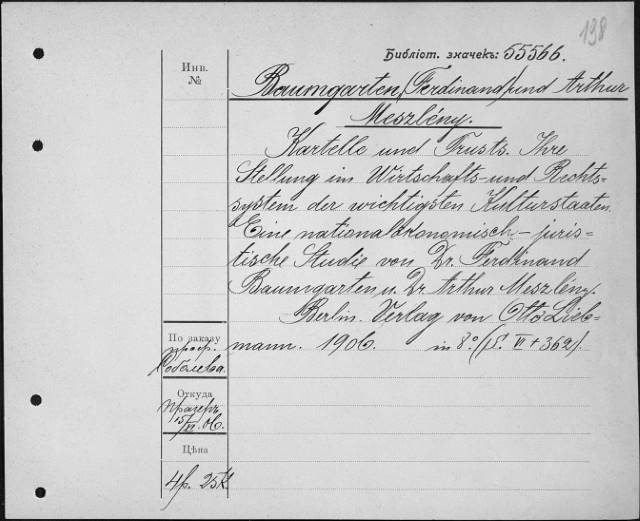 138
Библіот. значекъ: 55566.
Инв.
№
Baumgarten, (Ferdinand) und Arthur
Meszlény.
Kartelle und Trusts. Ihre
Stellung im Wirtschafts- und Rechts-
system der wichtigsten Kulturstaaten.
Eine nationalökonomisch-juris-
tische Studie von Dr. Ferdinand
Baumgarten u. Dr. Arthur Meszlény.
Berlin. Verlag von Otto Lieb-
mann. 1906. in 8.° (pS. VI + 362).
По заказу
проф.
Соболева.
Откуда
Прагеръ
15/XI. 06.
Цѣна
4р. 25к.